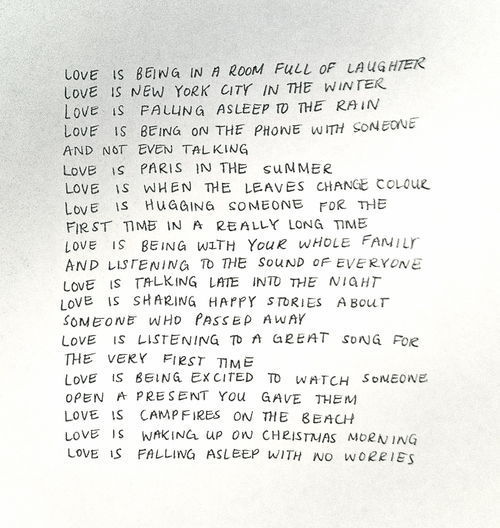 LOVE IS BEING IN A ROOM FULL OF LAUGHTER
LOVE IS NEW YORK CITY IN THE WINTER
LOVE IS FALLING ASLEEP TO THE RAIN
LOVE IS BEING ON THE PHONE WITH SOMEONE
AND NOT EVEN TALKING
LOVE IS PARIS IN THE SUMMER
LOVE IS WHEN THE LEAVES CHANGE COLOUR
LOVE IS HUGGING SOMEONE FOR THE
FIRST TIME IN A REALLY LONG TIME
LOVE IS BEING WITH YOUR WHOLE FAMILY
AND LISTENING TO THE SOUND OF EVERYONE
LOVE IS TALKING LATE INTO THE NIGHT
LOVE IS SHARING HAPPY STORIES ABOUT
SOMEONE WHO PASSED AWAY
LOVE IS LISTENING TO A GREAT SONG FOR
THE VERY FIRST TIME
LOVE IS BEING EXCITED TO WATCH SOMEONE
OPEN A PRESENT YOU GAVE THEM
LOVE IS CAMPFIRES ON THE BEACH
LOVE IS WAKING UP ON CHRISTMAS MORNING
LOVE IS FALLING ASLEEP WITH NO WORRIES